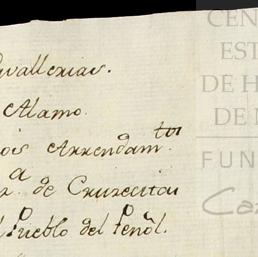 Cavallerias.
Alamo.
Arrendam.tos
r.a de Cruzecitas
Pueblo del Peñol.
CEN
EST
DE H
DE
FUN
Ca